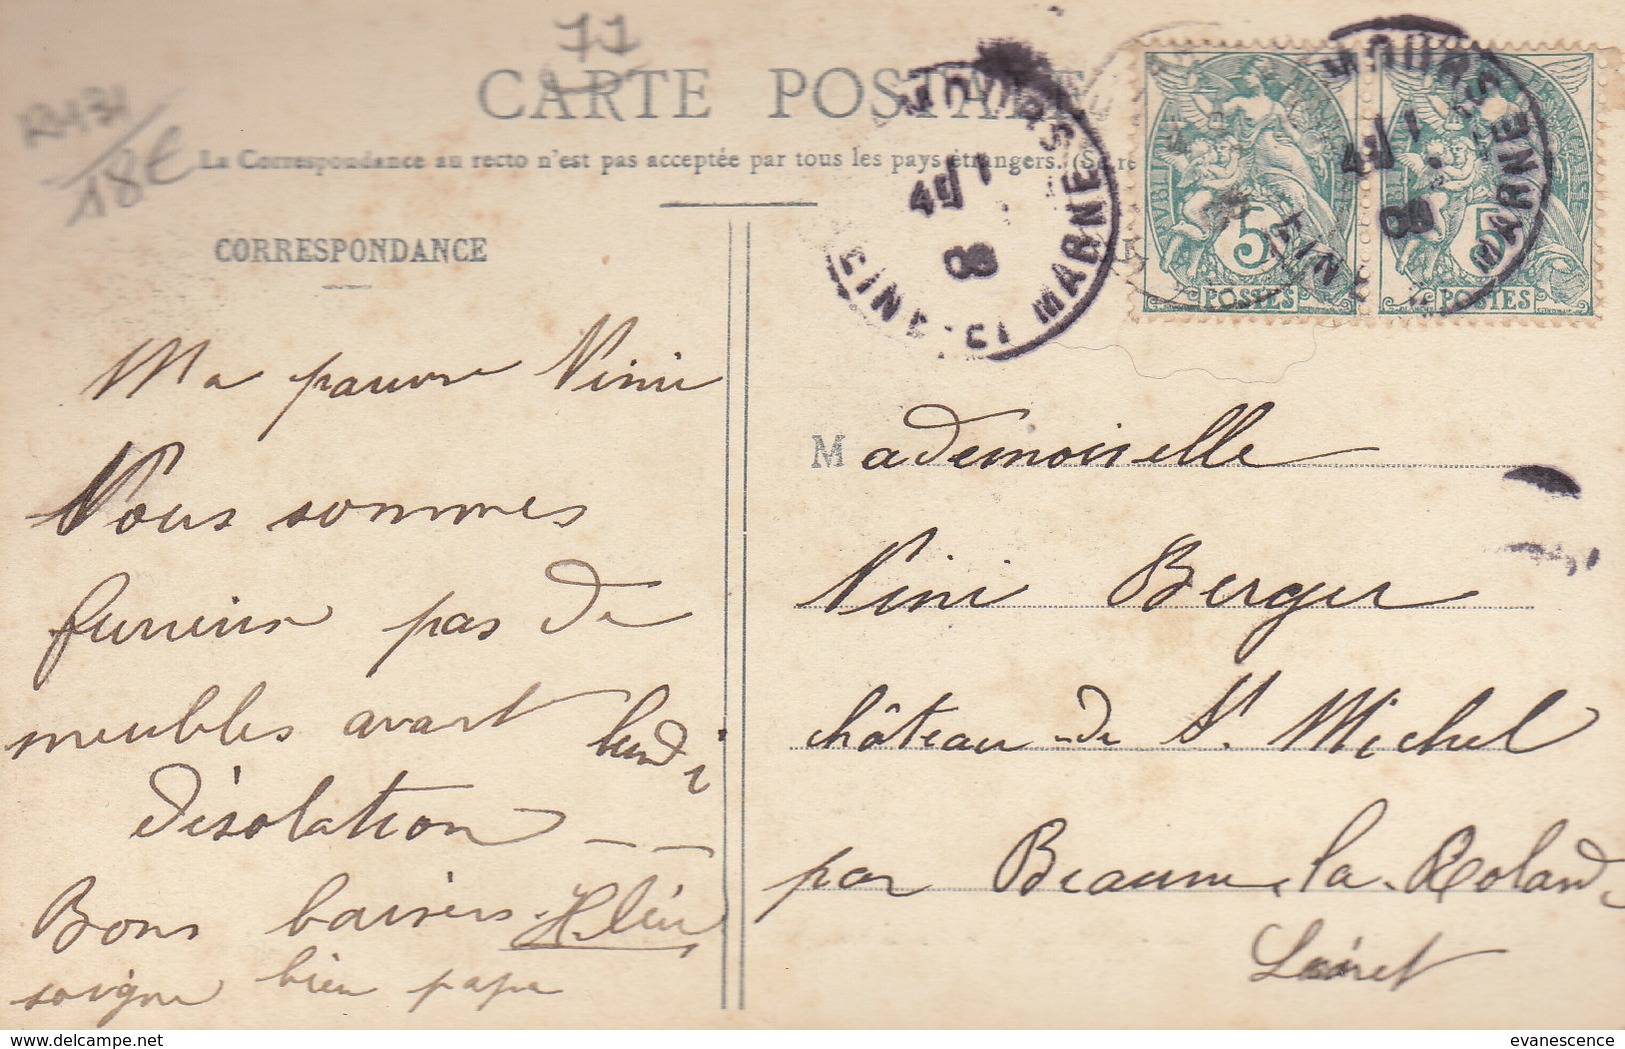 77
CARTE POSTALE
18€
La Correspondance au recto n'est pas acceptée par tous les pays étrangers. (Se re
CORRESPONDANCE
MOURS
SEINE-ET-MARNE
08
5
POSTES
5
POSTES
Ma pauvre Nini
Nous sommes
pas de
meubles avant lundi
Désolation
Bons baisers
soigne bien papa
Mademoiselle
Nini Berger
château de St Michel
par Beaune la Rolande
Loiret
evanescence